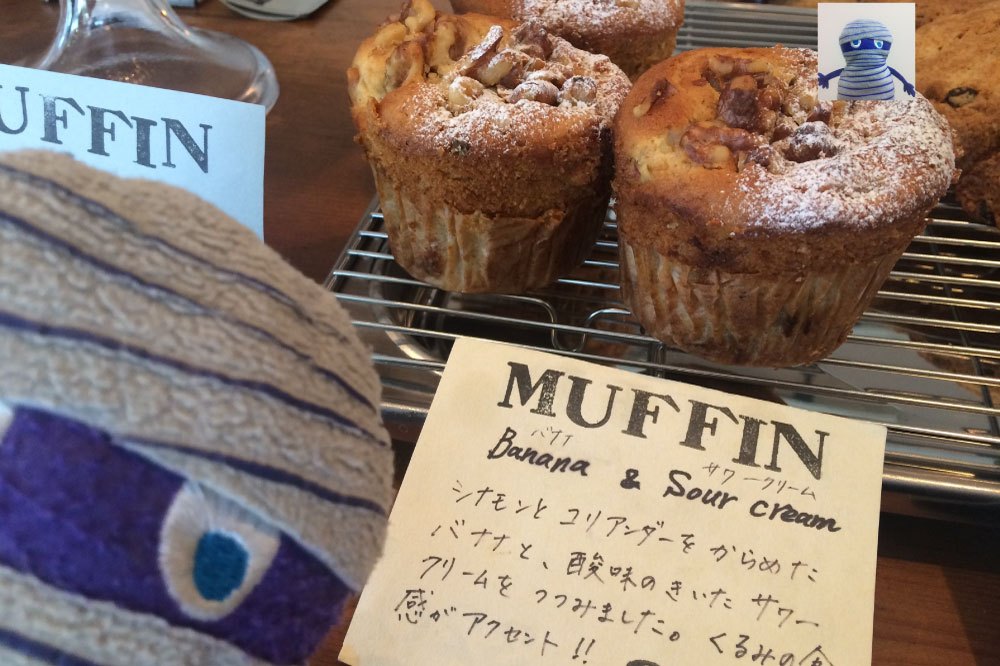 MUFFIN
MUFFIN
バナナ サワークリーム
Banana & Sour cream
シナモンとコリアンダーをからめた
バナナと、酸味のきいたサワー
クリームをつつみました。くるみの食
感がアクセント!!